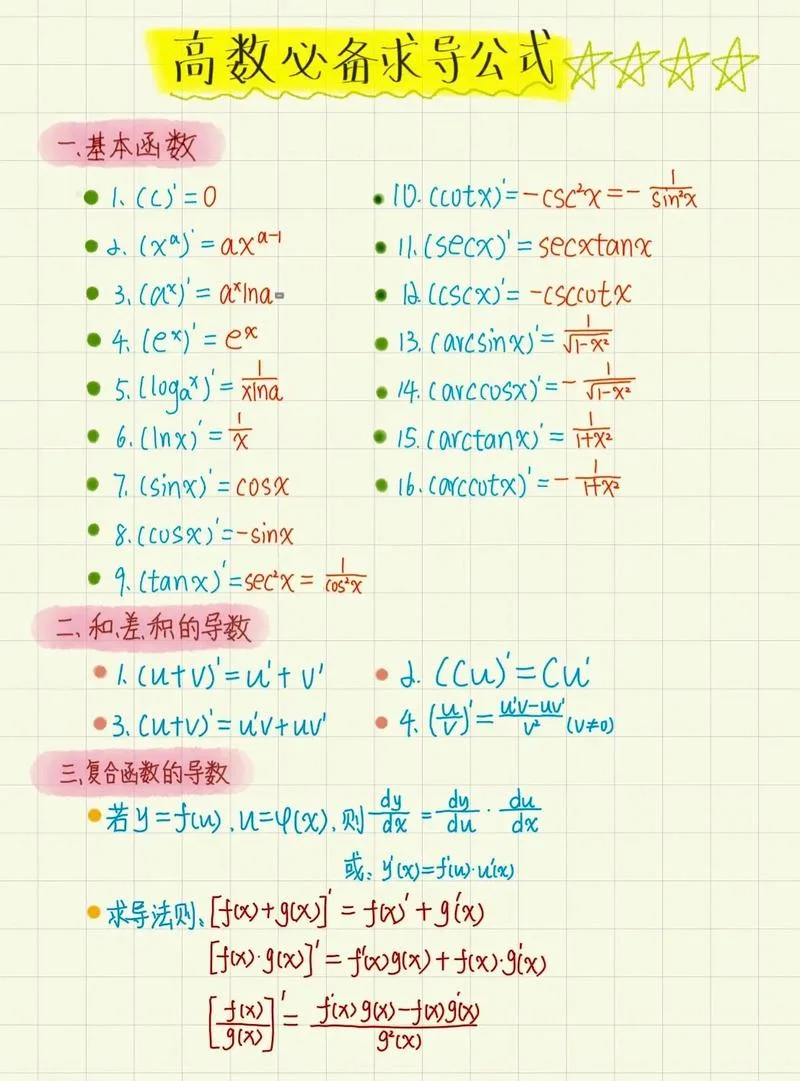 高数必备求导公式
一.基本函数
1. (c)' = 0
2. (xᵃ)' = axᵃ⁻¹
3. (aˣ)' = aˣlna
4. (eˣ)' = eˣ
5. (logₐˣ)' = 1/(xlna)
6. (lnx)' = 1/x
7. (sinx)' = cosx
8. (cosx)' = -sinx
9. (tanx)' = sec²x = 1/cos²x
10. (cotx)' = -csc²x = - 1/sin²x
11. (secx)' = secxtanx
12. (cscx)' = -csccotx
13. (arcsinx)' = 1/√(1-x²)
14. (arccosx)' = - 1/√(1-x²)
15. (arctanx)' = 1/(1+x²)
16. (arccotx)' = - 1/(1+x²)
二.和.差.积的导数
1. (u+v)' = u' + v'
2. (Cu)' = Cu'
3. (u+v)' = u'v + uv'
4. (u/v)' = (u'v-uv')/v² (v≠0)
三.复合函数的导数
若y=f(u),u=φ(x),则 dy/dx = dy/du · du/dx
或: y'(x)=f'(u)·u'(x)
求导法则: [f(x)+g(x)]' = f(x)' + g'(x)
[f(x)·g(x)]' = f'(x)g(x)+f(x)·g'(x)
[f(x)/g(x)]' = (f'(x)g(x)-f(x)g'(x))/g²(x)